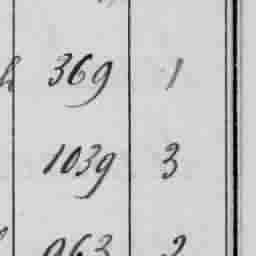 369 1
1039 3
963 2